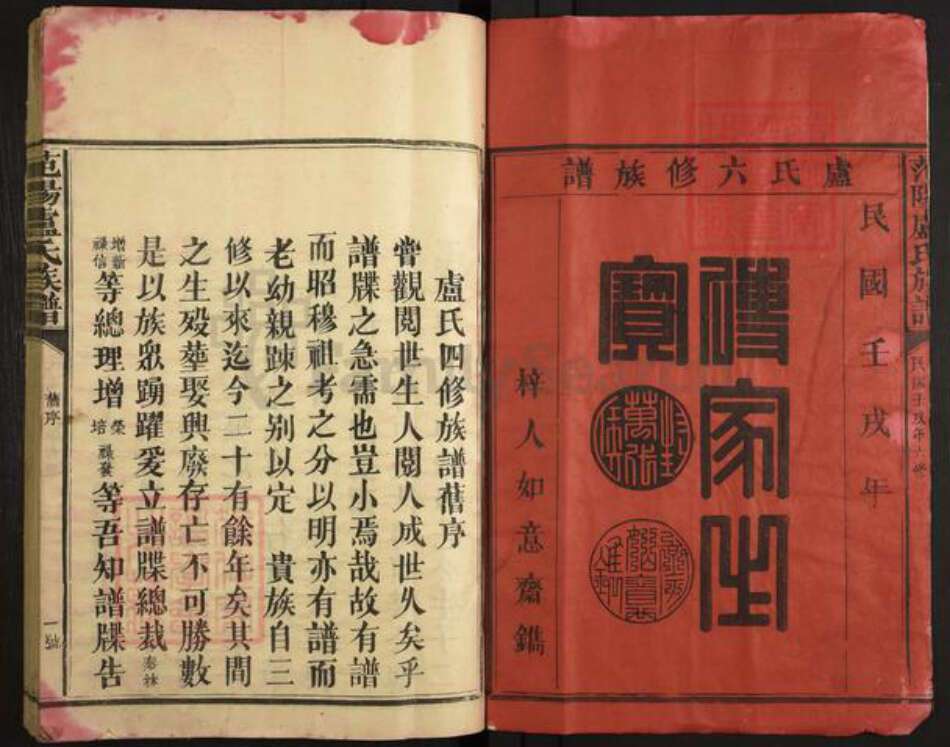 盧氏六修族譜
民國壬戌年
傳家之
寶
梓人如意齋鐫
范陽盧氏族譜
盧氏四修族譜舊序
嘗觀閱世生人閱人成世久矣乎
譜牒之急需也豈小焉哉故有譜
而昭穆祖考之分以明亦有譜而
老幼親踈之别以定　貴族自三
修以來迄今二十有餘年矣其間
之生殁塟娶興廢存亡不可勝數
是以族衆踴躍爰立譜牒總裁泰祿
增新祿信等總理增榮培祿發等吾知譜牒告
范陽盧氏族譜
舊序
一號